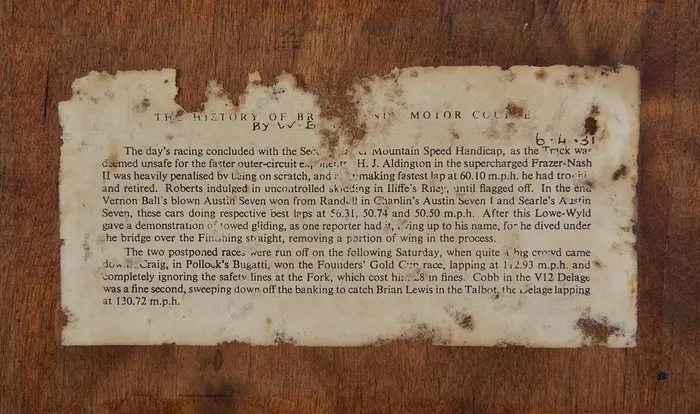 THE HISTORY OF BR MOTOR COURSE
BY W. B
6.4.31
The day's racing concluded with the Mountain Speed Handicap, as the Track was
deemed unsafe for the faster outer-circuit H. J. Aldington in the supercharged Frazer-Nash
II was heavily penalised by being on scratch, and making fastest lap at 60.10 m.p.h. he had
and retired. Roberts indulged in uncontrolled skidding in Iliffe's Riley, until flagged off. In the end
Vernon Ball's blown Austin Seven won from Randall in Chaplin's Austin Seven and Searle's Austin
Seven, these cars doing respective best laps at 50.74 and 50.50 m.p.h. After this Lowe-Wyld
gave a demonstration of towed gliding, as one reporter had it, living up to his name, for he dived under
the bridge over the Finishing straight, removing a portion of wing in the process.
The two postponed races were run off on the following Saturday, when quite a big crowd came
down. Craig, in Pollock's Bugatti, won the Founders' Gold Cup race, lapping at 112.93 m.p.h. and
completely ignoring the safety lines at the Fork, which cost him in fines. Cobb in the V12 Delage
was a fine second, sweeping down off the banking to catch Brian Lewis in the Talbot, the Delage lapping
at 130.72 m.p.h.